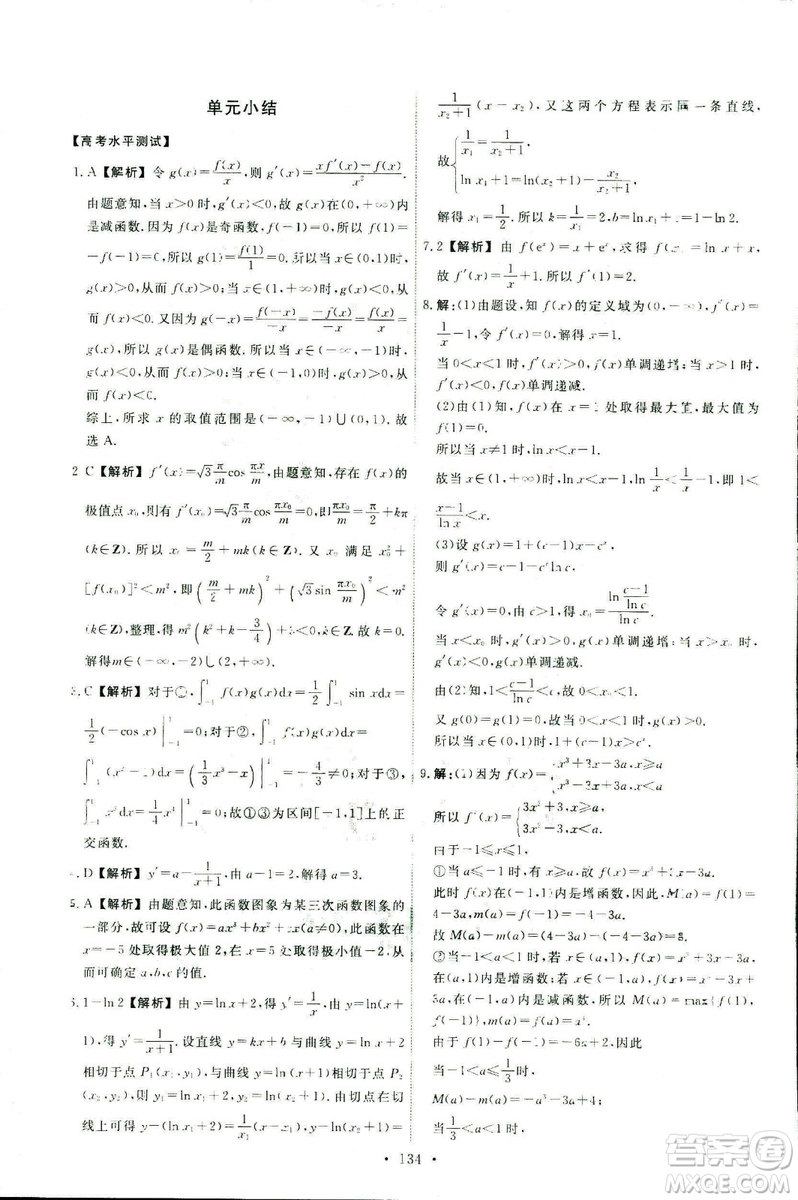 单元小结
【高考水平测试】
1. A 【解析】 令 g(x)=f(x)/x, 则 g′(x)=(xf′(x)-f(x))/x².
由题意知,当 x>0 时,g′(x)<0,故 g(x)在(0,+∞)内
是减函数.因为 f(x)是奇函数,f(-1)=0,所以 f(1)=
-f(-1)=0,所以 g(1)=f(1)/1=0.当 x∈(0,1)时,
g(x)>0,所以 f(x)>0;当 x∈(1,+∞)时,
g(x)<0,所以 f(x)<0.又因为 g(-x)=f(-x)/-x=-f(x)/-x=
g(x),所以 g(x)是偶函数,所以当 x∈(-∞,-1)时,
g(x)<0,所以 f(x)>0;当 x∈(-1,0)时,g(x)>0,所以
f(x)<0.
综上,所求 x 的取值范围是(-∞,-1)∪(0,1).故
选 A.
2 C 【解析】 f′(x)=√3 π/m cos πx/m,由题意知,存在 f(x)的
极值点 x₀,有 f′(x₀)=√3 π/m cos πx₀/m=0,即 πx₀/m=π/2+kπ
(k∈Z).所以 x₀=m/2+mk(k∈Z).又 x₀ 满足 x₀²+
[f(x₀)]²<m²,即(m/2+mk)²+(√3 sin πx₀/m)²<m²
(k∈Z),整理,得 m²(k²+k-3/4)+3<0.取 k=0,
解得m∈(-∞,-2)∪(2,+∞).
3. C 【解析】 对于①,∫₋₁¹ f(x)g(x)dx=1/2 ∫₋₁¹ sin xdx=
1/2(-cos x)|₋₁¹=0;对于②,∫₋₁¹ f(x)g(x)dx=
∫₋₁¹(x²-1)dx=(1/3 x³-x)|₋₁¹=-4/3;对于③,
∫₋₁¹ x³dx=1/4 x⁴|₋₁¹=0,所以①③为区间[-1,1]上的正
交函数.
. D 【解析】 y′=a-1/(x+1),由题意,得 a-1=2.解得 a=3.
5. A 【解析】 由题意知,此函数图象为某三次函数图象的
一部分,故可设 f(x)=ax³+bx²+cx(a≠0),此函数在
x=-5 处取得极大值 2,在 x=5 处取得极小值-2,即
可确定 a,b,c 的值.
6. 1-ln 2 【解析】 由 y=ln x+2,得 y′=1/x;由 y=ln(x+
1),得 y′=1/(x+1).设直线 y=kx+b 与曲线 y=ln x+2
相切于点 P₁(x₁,y₁),与曲线 y=ln(x+1)相切于点 P₂
(x₂,y₂),则 y₁=ln x₁+2,y₂=ln(x₂+1).由点 P₁ 在切
线上可得 y-(ln x₁+2)=1/x₁(x-x₁),y-ln(x₂+1)=
1/(x₂+1)(x-x₂).又这两个方程表示同一条直线,
故{1/x₁=1/(x₂+1),
ln x₁+1=ln(x₂+1)-x₂/(x₂+1).
解得 x₁=1/2.所以 k=1/x₁=2,b=ln x₁+1=1-ln 2.
7. 2 【解析】 由 f(eˣ)=x+eˣ,得 f(x)=ln x+x,
故 f′(x)=1/x+1.所以 f′(1)=2.
8. 解:(1)由题设,知 f(x)的定义域为(0,+∞),f′(x)=
1/x-1,令 f′(x)=0,解得 x=1.
当 0<x<1 时,f′(x)>0,f(x)单调递增;当 x>1 时,
f′(x)<0,f(x)单调递减.
(2)由(1)知,f(x)在 x=1 处取得最大值,最大值为
f(1)=0.
所以当 x≠1 时,ln x<x-1.
故当 x∈(1,+∞)时,ln x<x-1,ln 1/x<1/x-1,即 1<
(x-1)/ln x<x.
(3)设 g(x)=1+(c-1)x-cˣ,
则 g′(x)=c-1-cˣln c.
令 g′(x)=0,解得 x₀=ln((c-1)/ln c)/ln c.
当 x<x₀ 时,g′(x)>0,g(x)单调递增;当 x>x₀ 时,
g′(x)<0,g(x)单调递减.
由(2)知,1<(c-1)/ln c<c,故 0<x₀<1.
又 g(0)=g(1)=0,故当 0<x<1 时,g(x)>0.
所以当 x∈(0,1)时,1+(c-1)x>cˣ.
9. 解:(1)因为 f(x)={x³+3x-3a,x≥a
x³-3x+3a,x<a
所以 f′(x)={3x²+3,x≥a
3x²-3,x<a
由于-1≤x≤1,
①当 a≤-1 时,
此时 f(x)在(-1,1)内是增函数,因此,M(a)=f(1)=
4-3a,m(a)=f(-1)=-4-3a.
故 M(a)-m(a)=(4-3a)-(-4-3a)=8.
②当-1<a<1 时,
内是增函数;若 x∈
(-1,a)内是减函数,所以,M(a)=max{f(1),
f(-1)},m(a)=f(a)=a³.
由于 f(1)-f(-1)=-6a+2,因此
当-1<a≤1/3 时,
M(a)-m(a)=-a³-3a+4;
当 1/3<a<1 时,
134
答案圈
MXQE.COM